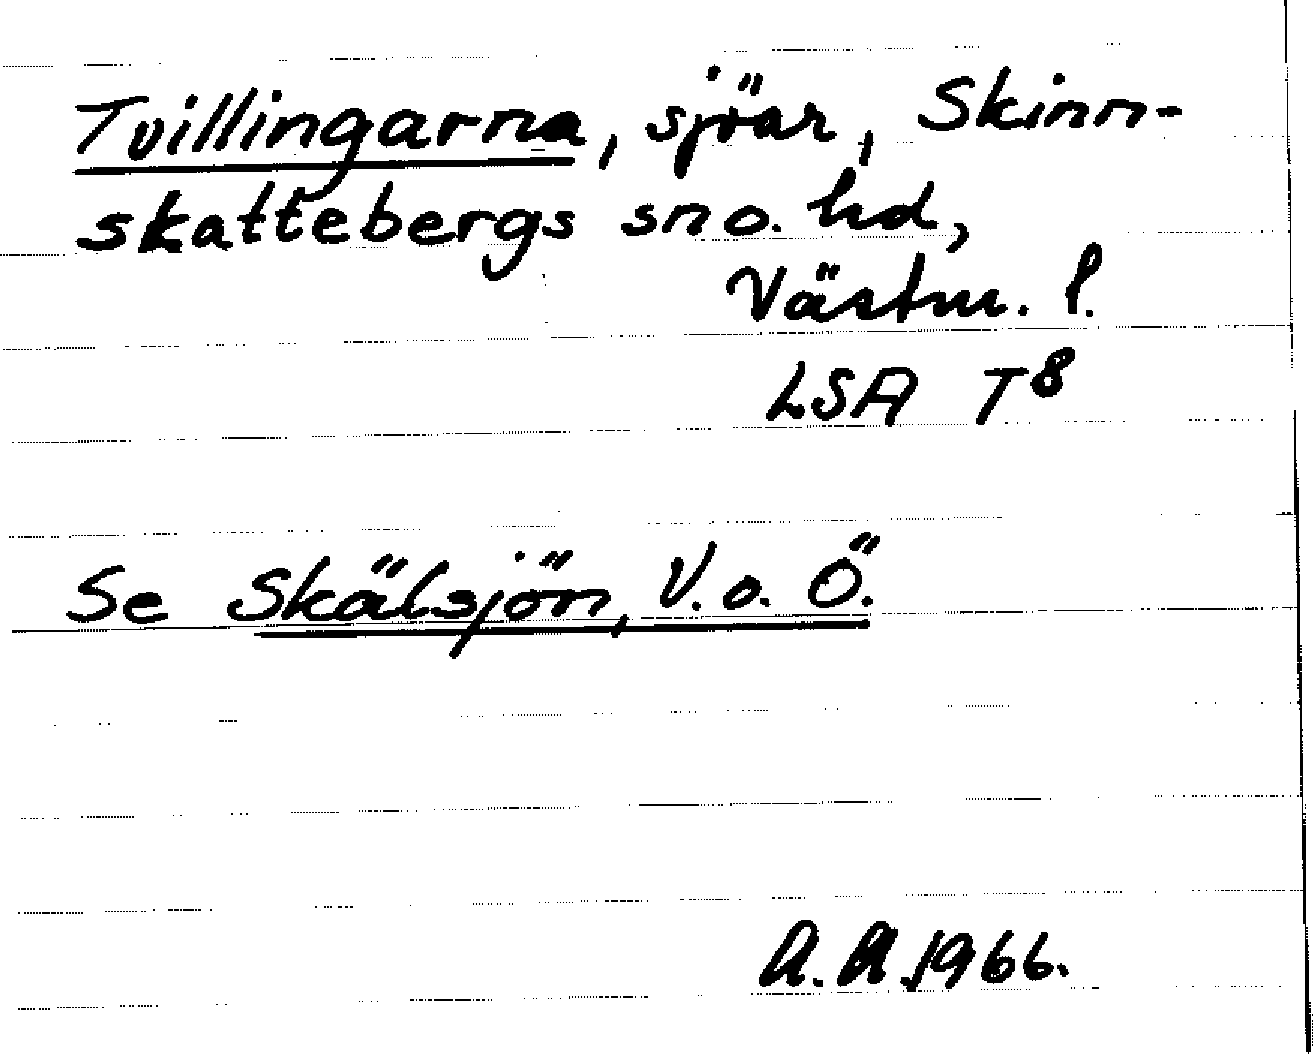 Tvillingarna, sjöar, Skinn-
skattebergs sn o. hd,
Västm. l.
LSA T8
Se Skälsjön, V. o. Ö.
A. A. 1966.